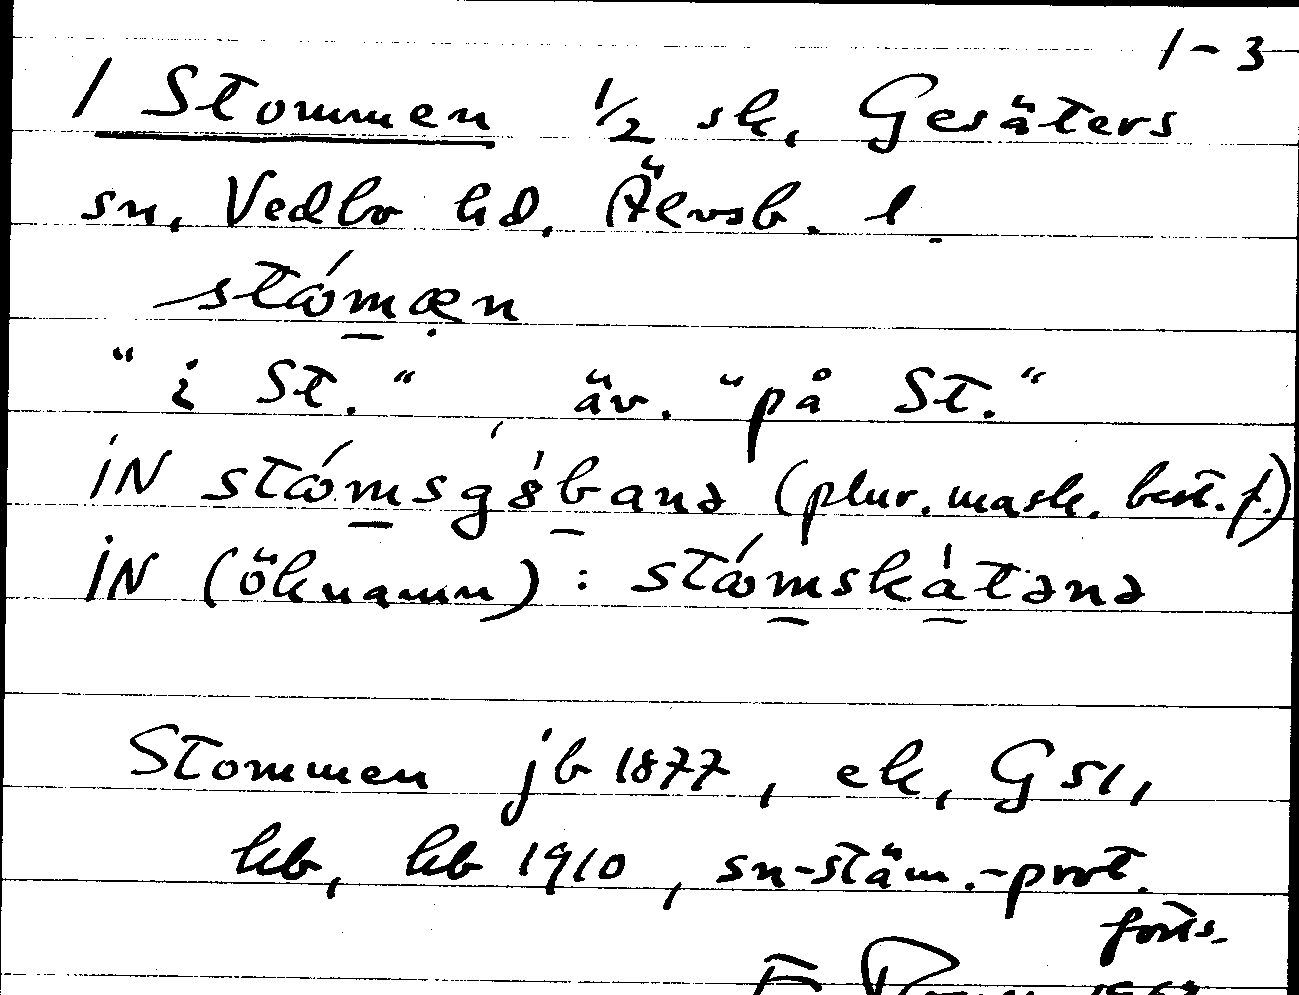 1-3
1 Stommen ½ sk, Gesäters
sn, Vedbo hd, Älvsb. l.
stómæn
"i St." äv. "på St."
iN stómsgɢ́bana (plur. mask. best. f.)
iN (öknamn): stómskátənə
Stommen jb 1877, ek, GS1,
hb, kb 1910, sn-stäm.-prot.
forts.